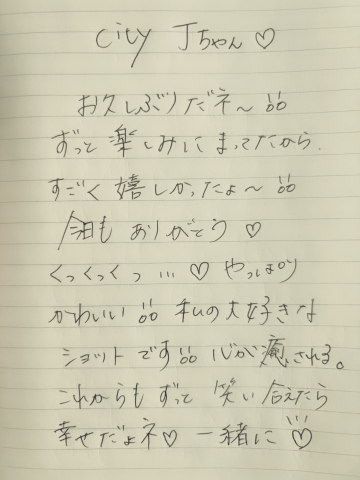 city Jちゃん♡
お久しぶりだネ〜!!
ずっと楽しみにまってたから.
すごく嬉しかったょ〜!!
今日もありがとう♡
くっくっくっ…♡やっぱり
かわいい!!私の大好きな
ショットです!!心が癒される。
これからもずっと笑い合えたら
幸せだょネ♡一緒に♡